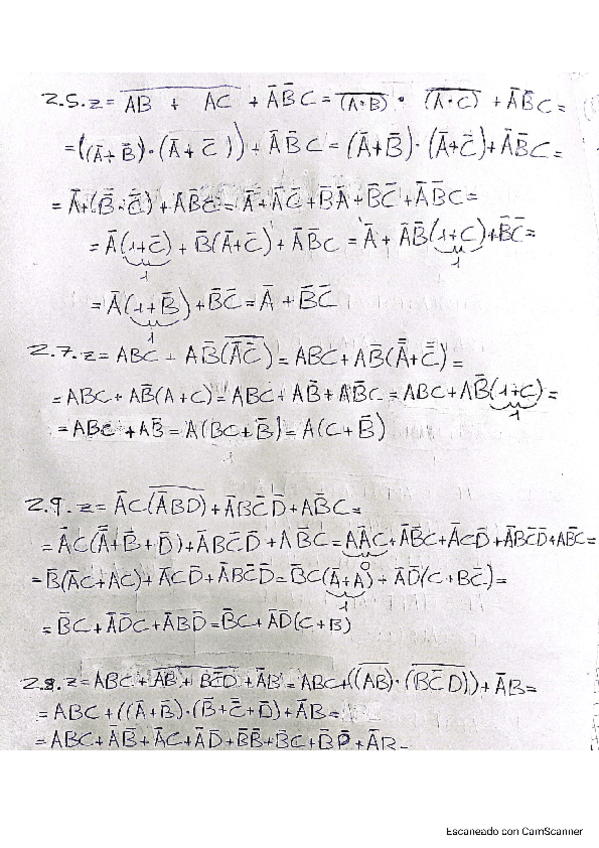 2.5. z = \overline{AB + AC} + A̅B̅C = \overline{(A·B)} · \overline{(A·C)} + A̅B̅C =
= ((A̅+B̅)·(A̅+C̅)) + A̅B̅C = (A̅+B̅)·(A̅+C̅)+A̅B̅C =
= A̅+(B̅·C̅)+A̅B̅C = A̅+A̅C̅+B̅A̅+B̅C̅+A̅B̅C=
= A̅(1+C̅) + B̅(A̅+C̅) + A̅B̅C = A̅ + A̅B̅(1+C)+B̅C̅=
1 1
= A̅(1+B̅)+B̅C̅ = A̅ + B̅C̅
1
2.7. z = ABC + AB̅(\overline{A̅C̅}) = ABC + AB̅(A̿+C̿) =
= ABC + AB̅(A+C) = ABC + AB̅ + AB̅C = ABC+AB̅(1+C) =
1
= ABC + AB̅ = A(BC+B̅) = A(C+B̅)
2.9. z = A̅C(\overline{A̅BD}) + A̅BC̅D̅ + AB̅C =
= A̅C(A̿+B̅+D̅)+A̅BC̅D̅ + AB̅C = A̅AC+A̅B̅C+A̅CD̅+A̅BC̅D̅+AB̅C=
0
= B̅(A̅C+AC)+A̅CD̅+A̅BC̅D̅=B̅C(A̅+A) + A̅D̅(C+BC̅)=
1
= B̅C+A̅D̅C+A̅BD̅=B̅C+A̅D̅(C+B)
2.8. z = ABC + \overline{AB + BC̅D} + A̅B = ABC+(\overline{(AB)}·\overline{(BC̅D)})+A̅B=
= ABC + ((A̅+B̅)·(B̅+C̿+D̅)+A̅B=
= ABC+A̅B̅+A̅C+A̅D̅+B̅B̅+B̅C+B̅D̅+A̅B=
Escaneado con CamScanner